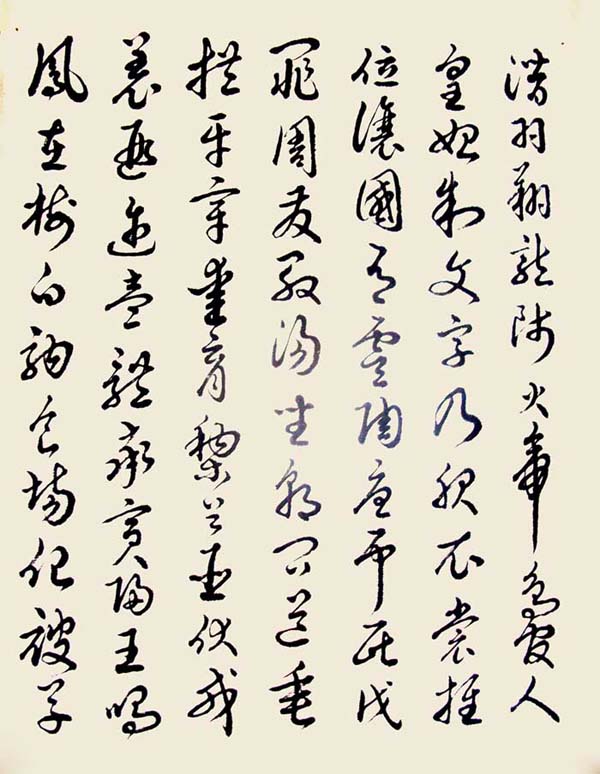 潛羽翔龍師火帝鳥官人
皇始制文字乃服衣裳推
位讓國有虞陶唐弔民伐
罪周發殷湯坐朝問道垂
拱平章愛育黎首臣伏戎
羌遐迩壹體率賓歸王鳴
鳳在樹白駒食場化被草